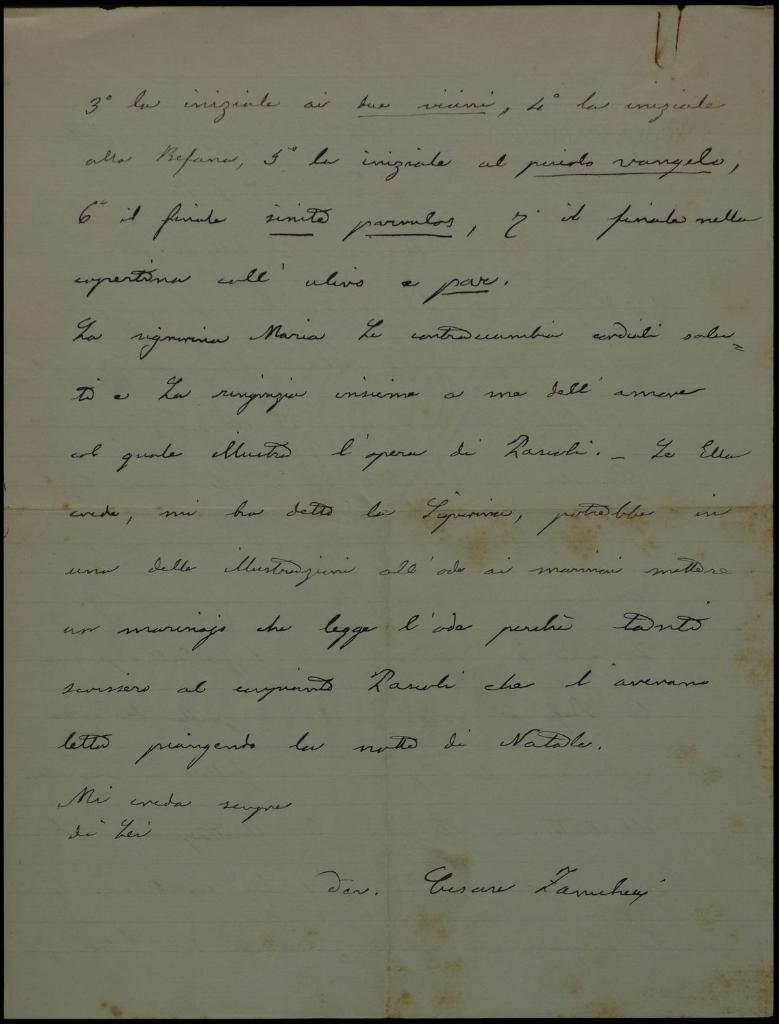 3° la iniziale ai due vicini, 4° la iniziale
alla Befana, 5° la iniziale al piccolo vangelo,
6° il finale sinite parvulos, 7° il finale nella
copertina coll' ulivo e pax.
La signorina Maria Le contraccambia cordiali salu=
ti e La ringrazia insieme a me dell' amore
col quale illustra l'opera di Pascoli. – Se Ella
crede, mi ha detto la Signorina, potrebbe in
una delle illustrazioni all'ode ai marinai mettere
un marinajo che legge l'ode perchè tanti
scrissero al compianto Pascoli che l'avevano
letta piangendo la notte di Natale.
Mi creda sempre
di Lei
dev. Cesare